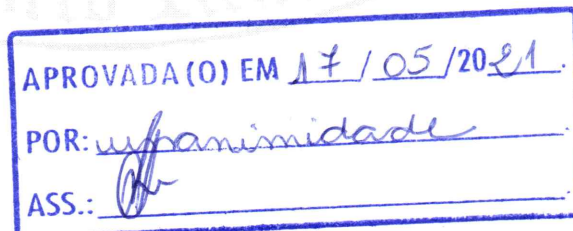 APROVADA(O) EM 17/05/2021.
POR: unanimidade.
ASS.: